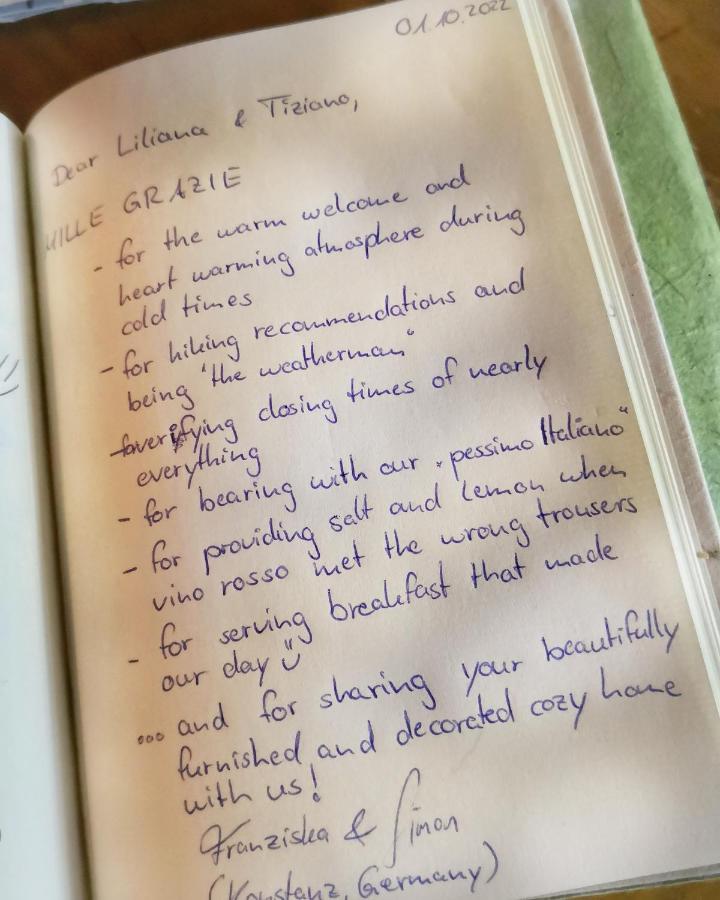 01.10.2022
Dear Liliana & Tiziano,
MILLE GRAZIE
- for the warm welcome and
heart warming atmosphere during
cold times
- for hiking recommendations and
being "the weatherman"
verifying closing times of nearly
everything
- for bearing with our „pessimo Italiano“
- for providing salt and lemon when
vino rosso met the wrong trousers
- for serving breakfast that made
our day Ü
... and for sharing your beautifully
furnished and decorated cozy home
with us!
Franziska & Simon
(Konstanz, Germany)